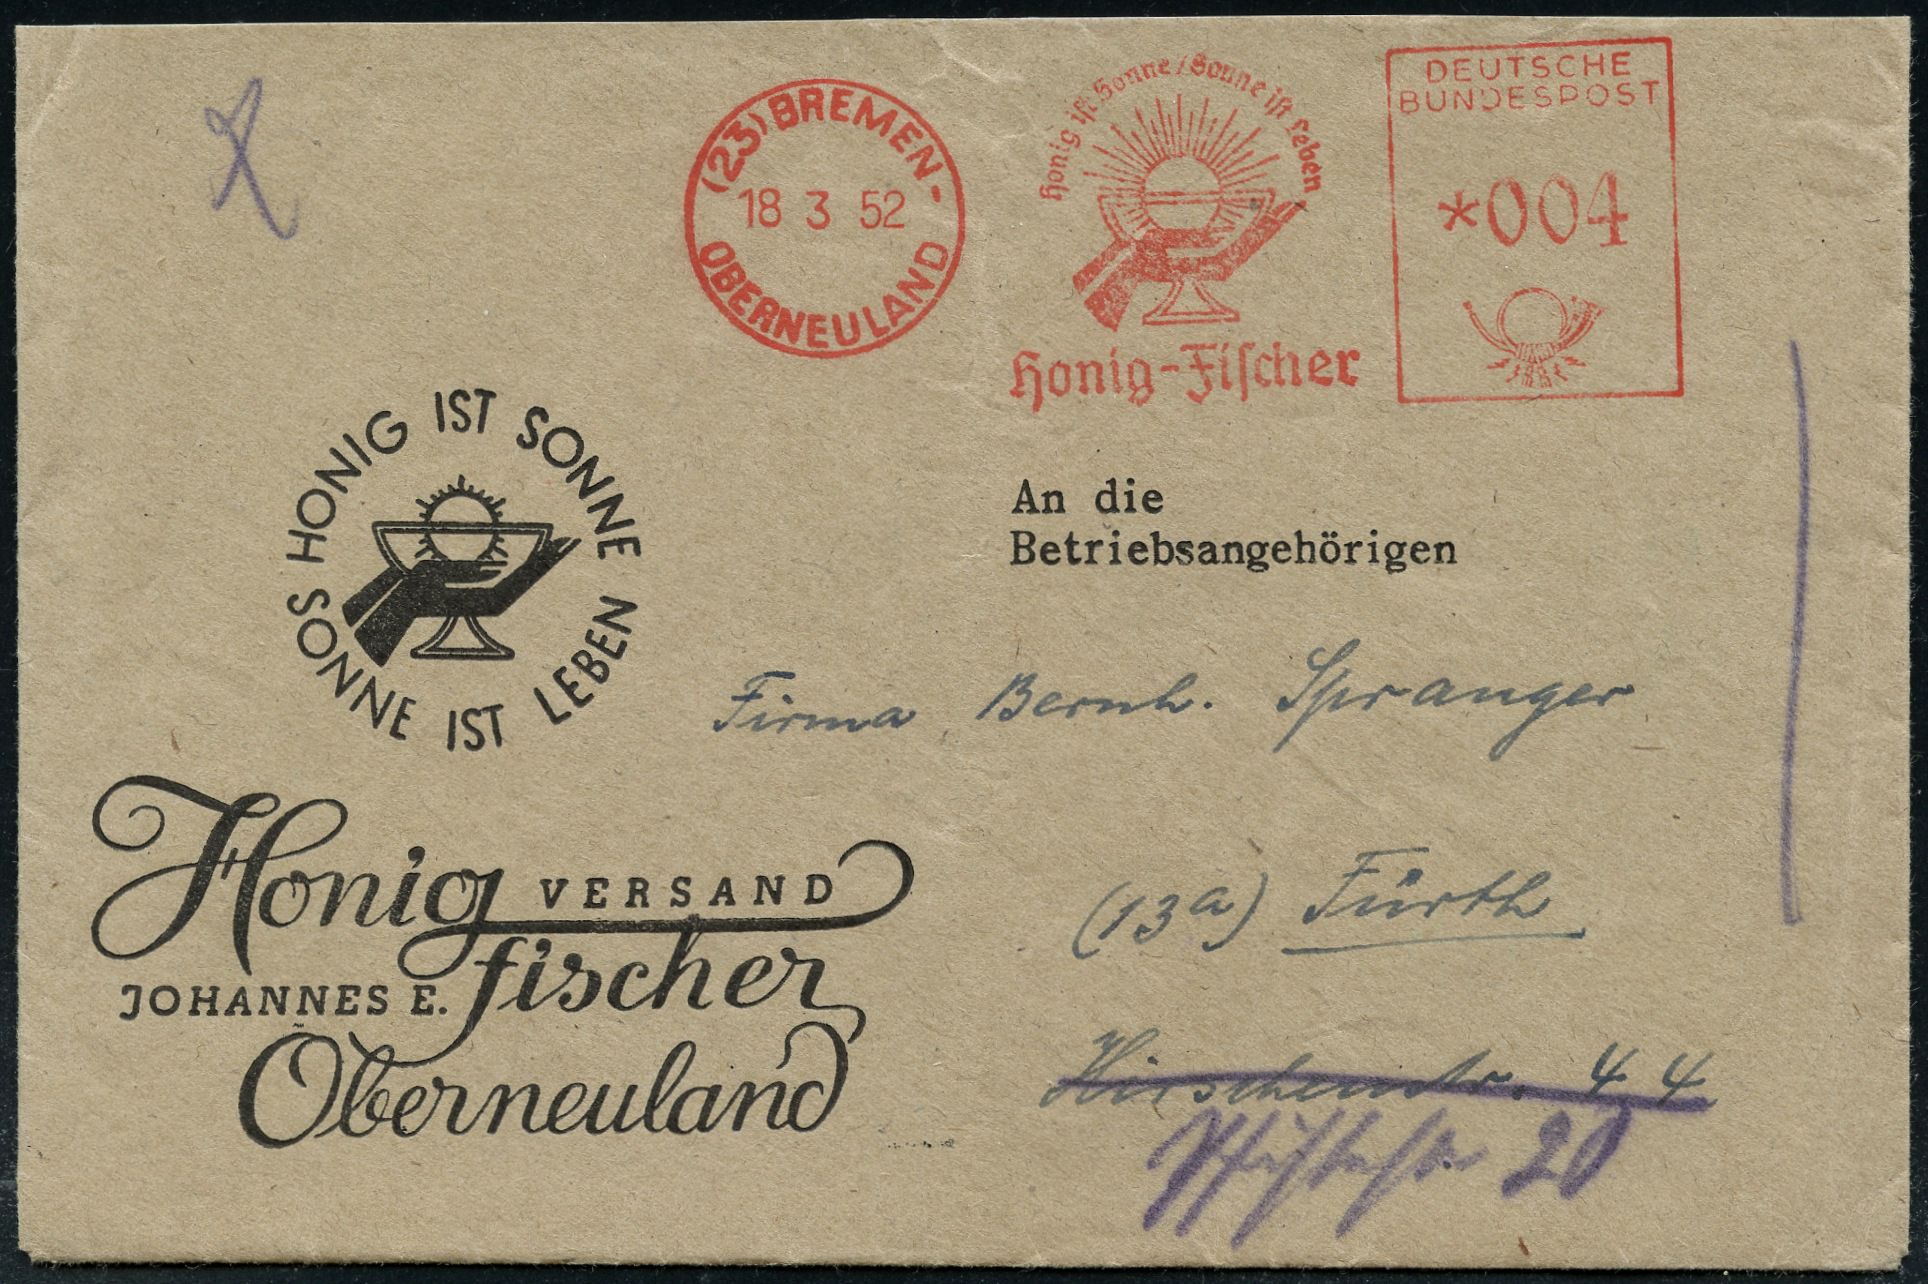 (23) BREMEN-
OBERNEULAND
18 3 52
Honig ist Sonne / Sonne ist Leben
Honig-Fischer
DEUTSCHE
BUNDESPOST
*004
HONIG IST SONNE
SONNE IST LEBEN
An die
Betriebsangehörigen
Firma Bernh. Spranger
Honig VERSAND
JOHANNES E. fischer
Oberneuland
(13a) Fürth
Hirschenstr. 44
20